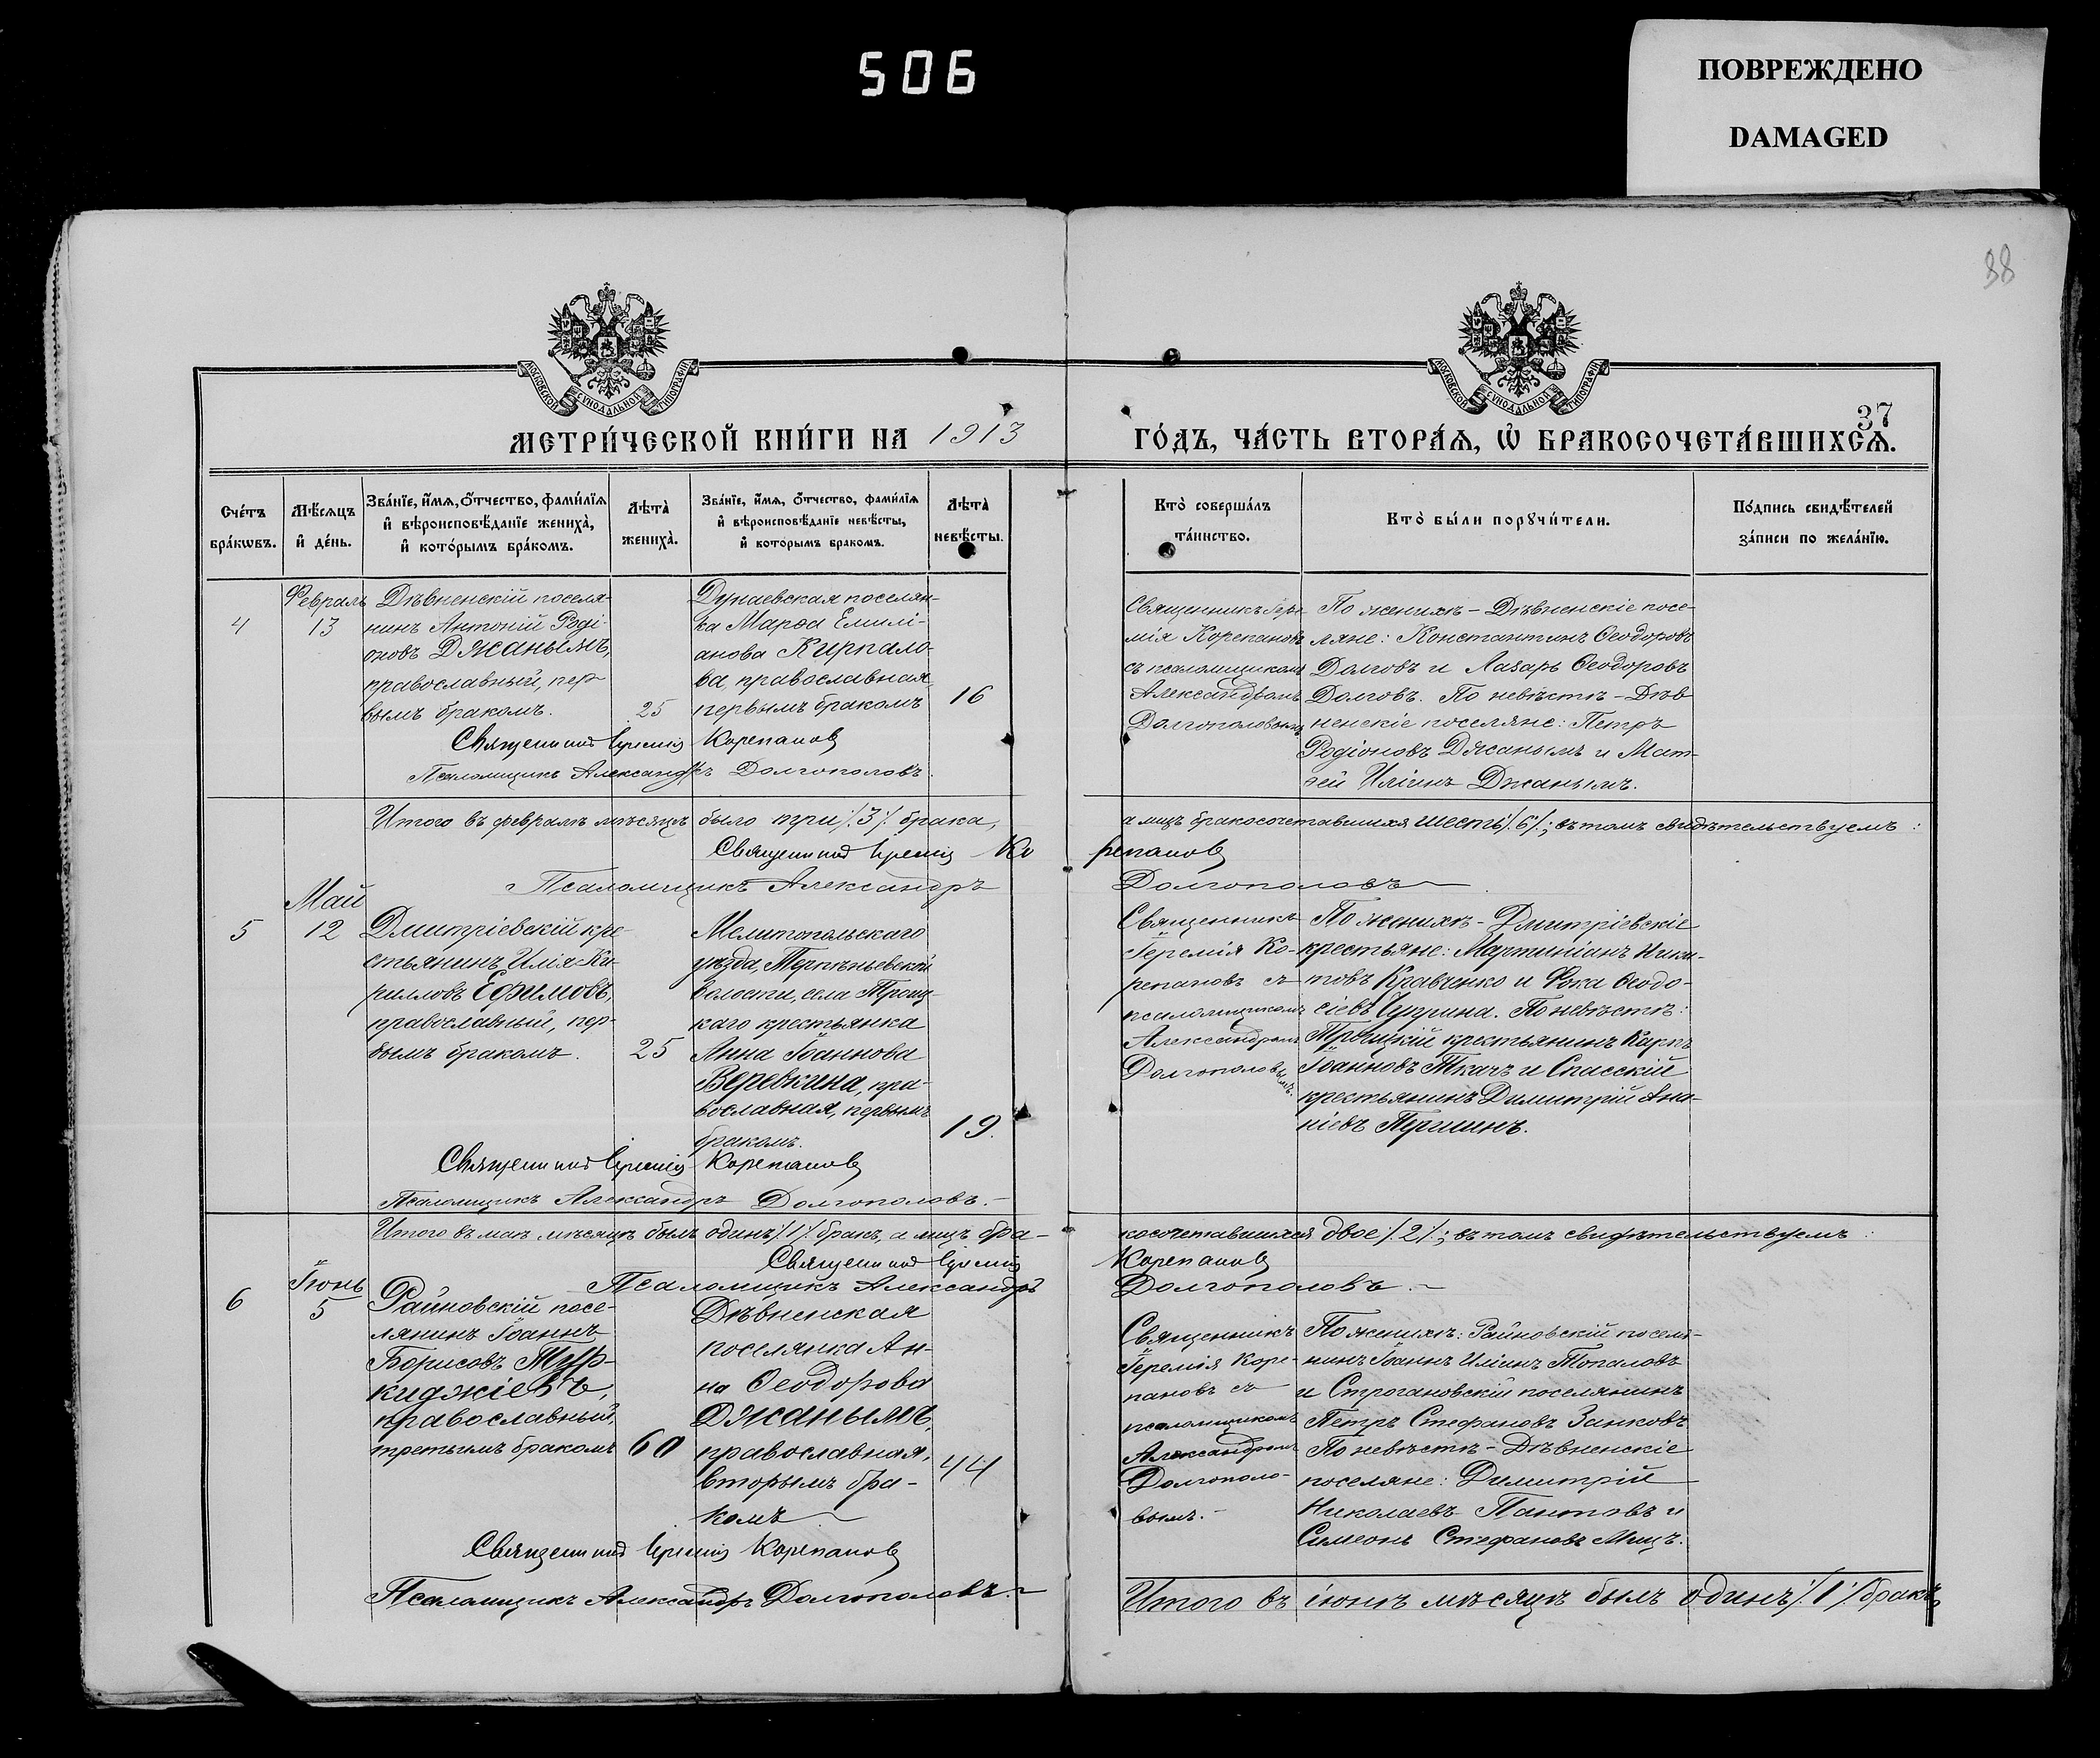 506
ПОВРЕЖДЕНО
DAMAGED
38
37
МОСКОВСКОЙ СУНОДАЛЬНОЙ ТИПОГРАФІИ
МОСКОВСКОЙ СУНОДАЛЬНОЙ ТИПОГРАФІИ
МЕТРИ́ЧЕСКОЙ КНИ́ГИ НА 1913
ГО́ДЪ, ЧА́СТЬ ВТОРА́Ѧ, Ѡ БРАКОСОЧЕТА́ВШИХСѦ.
Сче́тъ бра́кѡвъ.
Мѣ́сяцъ и де́нь.
Зва́нїе, и́мѧ, ѻ҆́тчество, фами́лїѧ
и вѣроисповѣ́данїе жениха̀,
и кото́рымъ бра́комъ.
Лѣта̀ жениха̀.
Зва́нїе, и́мѧ, ѻ҆́тчество, фами́лїѧ
и вѣроисповѣ́данїе невѣ́сты,
и которымъ бракомъ.
Лѣта̀ невѣ́сты.
Кто̀ соверша́лъ
та́инство.
Кто̀ бы́ли порꙋчи́тели.
По́дпись свидѣ́телей
за́писи по жела́нїю.
4
Февраль
13
Дѣвненскій поселя-
нинъ Антоній Роді-
оновъ Джанымъ,
православный, пер-
вымъ бракомъ.
25
Дунаевская поселян-
ка Марѳа Емилі-
анова Кирпало-
ва, православная,
первымъ бракомъ
16
Священникъ Іере-
мія Корепановъ
съ псаломщикомъ
Александромъ
Долгополовымъ
По женихѣ – Дѣвненскіе посе-
ляне: Константинъ Ѳеодоровъ
Долговъ и Лазарь Ѳеодоровъ
Долговъ. По невѣстѣ – Дѣв
ненскіе поселяне: Петръ
Родіоновъ Джанымъ и Мат-
ѳей Иліинъ Джанымъ.
Священникъ Іеремія Корепановъ
Псаломщикъ Александръ Долгополовъ.
Итого въ февралѣ мѣсяцѣ было три /.3/. брака,
а лицъ бракосочетавшихся шесть /.6/.; въ томъ свидѣтельствуемъ:
Священникъ Іеремія Ко
репановъ
Псаломщикъ Александръ
Долгополовъ
5
Май
12
Дмитріевскій кре-
стьянинъ Илія Ки-
рилловъ Ефимовъ,
православный, пер-
вымъ бракомъ.
25
Мелитопольскаго
уѣзда, Терпѣньевской
волости, села Троиц-
каго крестьянка
Анна Іоаннова
Веревкина, пра-
вославная, первымъ
бракомъ.
19.
Священникъ
Іеремія Ко-
репановъ съ
псаломщикомъ
Александромъ
Долгополовымъ.
По женихѣ – Дмитріевскіе
крестьяне: Мартиніанъ Ники-
товъ Кравченко и Фока Ѳеодо-
сіевъ Чуприна. По невѣстѣ:
Троицкій крестьянинъ Карпъ
Іоанновъ Ткачъ и Спасскій
крестьянинъ Димитрій Ана-
ніевъ Тришинъ.
Священникъ Іеремія Корепановъ
Псаломщикъ Александръ Долгополовъ.
Итого въ маѣ мѣсяцѣ былъ одинъ /.1/. бракъ, а лицъ бра-
косочетавшихся двое /.2/.; въ томъ свидѣтельствуемъ:
Священникъ Іеремія
Корепановъ
Псаломщикъ Александръ
Долгополовъ.
6
Іюнь
5
Райновскій посе-
лянинъ Іоаннъ
Борисовъ Тур-
киджіевъ,
православный,
третьимъ бракомъ
60
Дѣвненская
поселянка Ан-
на Ѳеодорова
Джанымъ,
православная,
вторымъ бра-
комъ
44
Священникъ
Іеремія Коре-
пановъ съ
псаломщикомъ
Александромъ
Долгополо-
вымъ.
По женихѣ: Райновскій поселя-
нинъ Іоаннъ Иліинъ Топаловъ
и Строгановскій поселянинъ
Петръ Стефановъ Занковъ
По невѣстѣ – Дѣвненскіе
поселяне: Димитрій
Николаевъ Пантовъ и
Симеонъ Стефановъ Мицъ.
Священникъ Іеремія Корепановъ
Псаломщикъ Александръ Долгополовъ.
Итого въ іюнѣ мѣсяцѣ былъ одинъ /.1/. бракъ,